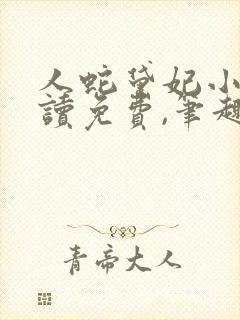 人蛇黛妃小
讀免費,筆趣
青帝大人